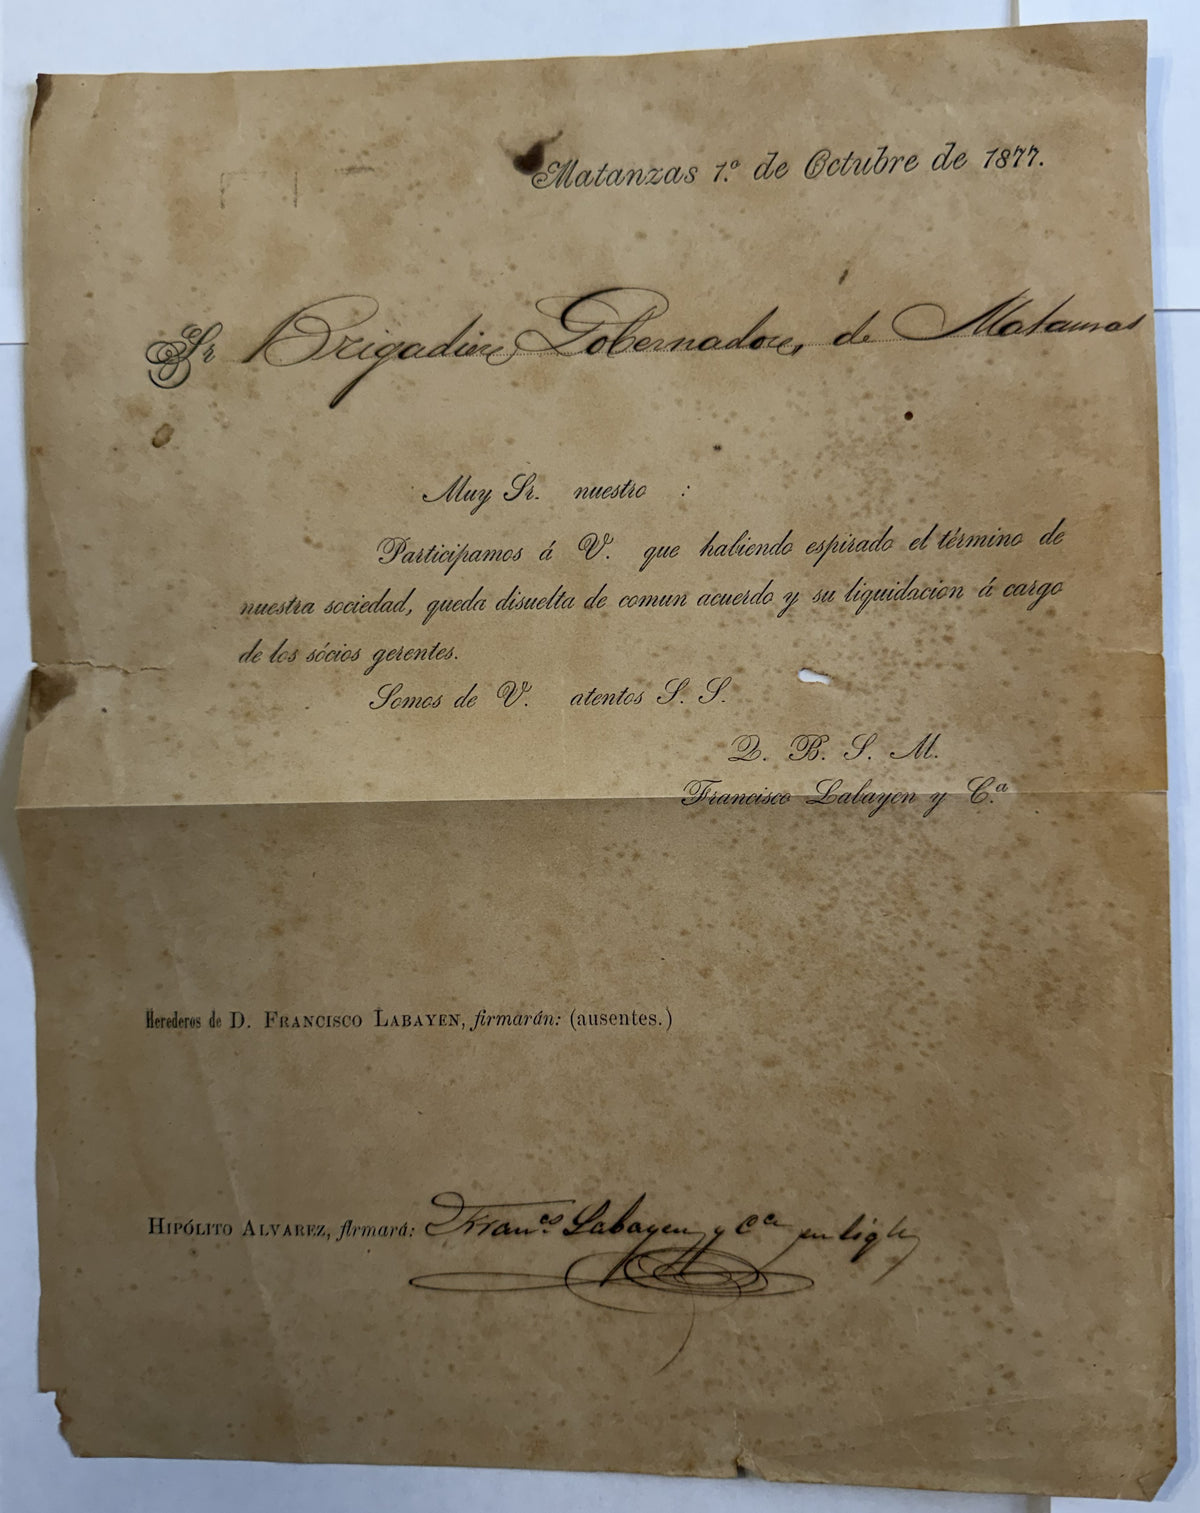 Matanzas 1.º de Octubre de 1877.
Sr Brigadier, Gobernador, de Matanzas
Muy Sr. nuestro :
Participamos á V. que habiendo espirado el término de
nuestra sociedad, queda disuelta de comun acuerdo y su liquidacion á cargo
de los sócios gerentes.
Somos de V. atentos S. S.
Q. B. S. M.
Francisco Labayen y C.ª
Herederos de D. FRANCISCO LABAYEN, firmarán: (ausentes.)
HIPÓLITO ALVAREZ, firmará: Fran.co Labayen y Ca en liqn